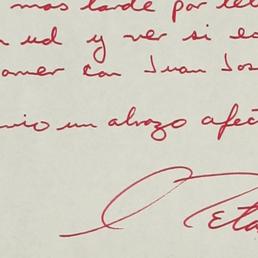 mas tarde por tele
n ud y ver si es
omer con Juan Jos
vio un abrazo afect